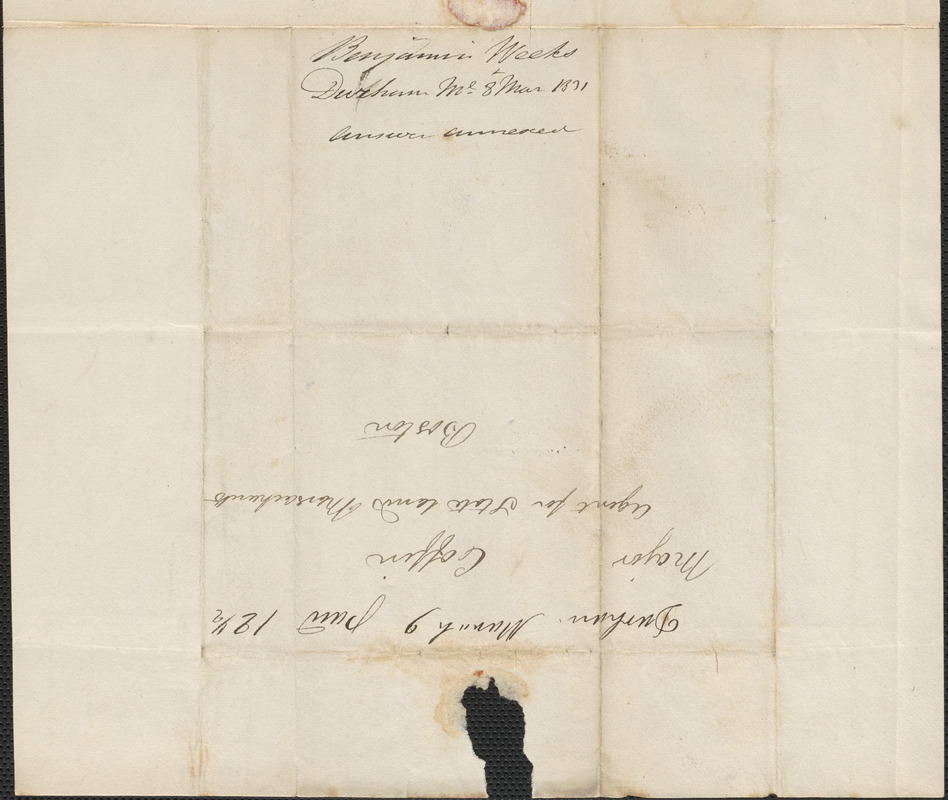 Benjamin Weeks
Durham Me 8 Mar 1831
answer annexed
Durham March 9 Paid 12 1/2
Major Coffin
Agent for State land Massachusetts
Boston